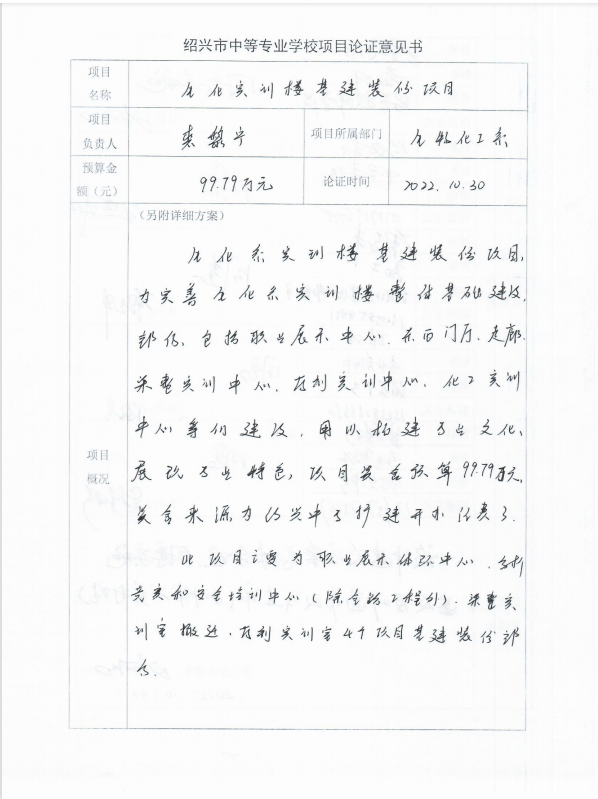 绍兴市中等专业学校项目论证意见书
项目名称 生化实训楼基建装饰项目
项目负责人 项目所属部门 生物化工系
预算金额（元） 99.79万元 论证时间 2022.10.30
（另附详细方案）
项目概况
生化系实训楼基建装饰项目,
为完善生化系实训楼整体基础建设
部份，包括职业展示中心、东西门厅、走廊、
实训中心、实训中心、化工实训
中心等的建设，用以构建专业文化、
展现专业特色，项目资金预算99.79万元,
资金来源为绍兴中专扩建开办经费。
此项目主要为职业展示体验中心、分析
和安全培训中心（除 工程外）、实
训室搬迁、实训室4个项目基建装饰部
份。